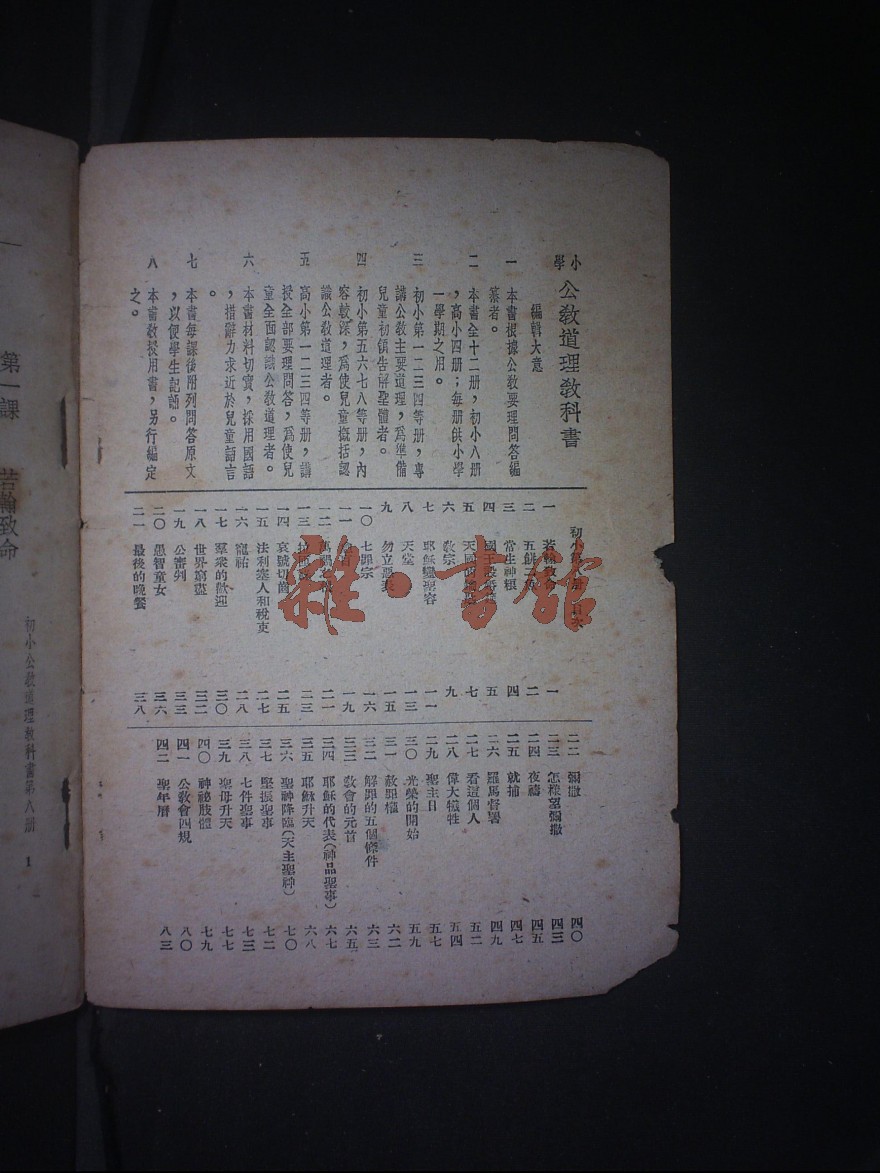 小學 公教道理教科書
編輯大意
一 本書根據公教要理問答編
纂者。
二 本書全十二册,初小八册
,高小四册;每册供小學
一學期之用。
三 初小第一二三四等册,專
講公教主要道理,爲準備
兒童初領告解聖體者。
四 初小第五六七八等册,內
容較深,爲使兒童概括認
識公教道理者。
五 高小第一二三四等册,講
授全部要理問答,爲使兒
童全面認識公教道理者。
六 本書材料切實,採用國語
,措辭力求近於兒童語言
。
七 本書每課後附列問答原文
,以便學生記誦。
八 本書教授用書,另行編定
之。
初小
一 若翰致命 一
二 五餅 二
三 常生神糧 四
四 國王 五
五 天國 七
六 教宗 九
七 耶穌變聖容 一一
八 天堂 一三
九 勿立惡表 一五
一〇 七罪宗 一六
一一 一九
一二 二一
一三 二三
一四 哀號切齒 二五
一五 法利塞人和稅吏 二七
一六 寵祐 二八
一七 羣衆的歡迎 三〇
一八 世界窮盡 三二
一九 公審判 三三
二〇 愚智童女 三六
二一 最後的晚餐 三八
二二 彌撒 四〇
二三 怎樣望彌撒 四三
二四 夜禱 四五
二五 就捕 四七
二六 羅馬督署 四九
二七 看這個人 五二
二八 偉大犧牲 五四
二九 聖主日 五七
三〇 光榮的開始 五九
三一 赦罪權 六二
三二 解罪的五個條件 六三
三三 教會的元首 六五
三四 耶穌的代表(神品聖事) 六七
三五 耶穌升天 六八
三六 聖神降臨(天主聖神) 七〇
三七 堅振聖事 七二
三八 七件聖事 七三
三九 聖母升天 七七
四〇 神祕肢體 七九
四一 公教會四規 八〇
四二 聖年曆 八三
雜·書館
第一課 若翰致命
初小公教道理教科書第八册 1